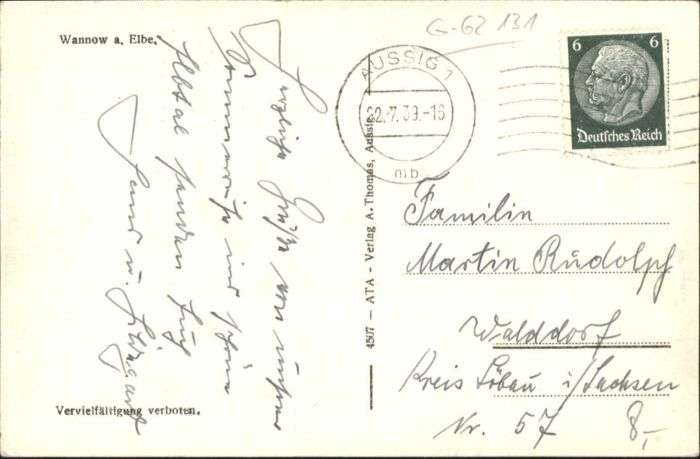 Wannow a. Elbe.
G-62 131
AUSSIG 1
2.7.39.-16
mb
6 6
Deutsches Reich
Herzliche Grüße von unsrer
Sommerreise ins schöne
Elbtal senden Euch
u. Hildegard
4507 — ATA - Verlag A. Thomas, Aussig.
Familie
Martin Rudolph
Walddorf
Kreis Löbau i/Sachsen
Nr. 57
8,-
Vervielfältigung verboten.